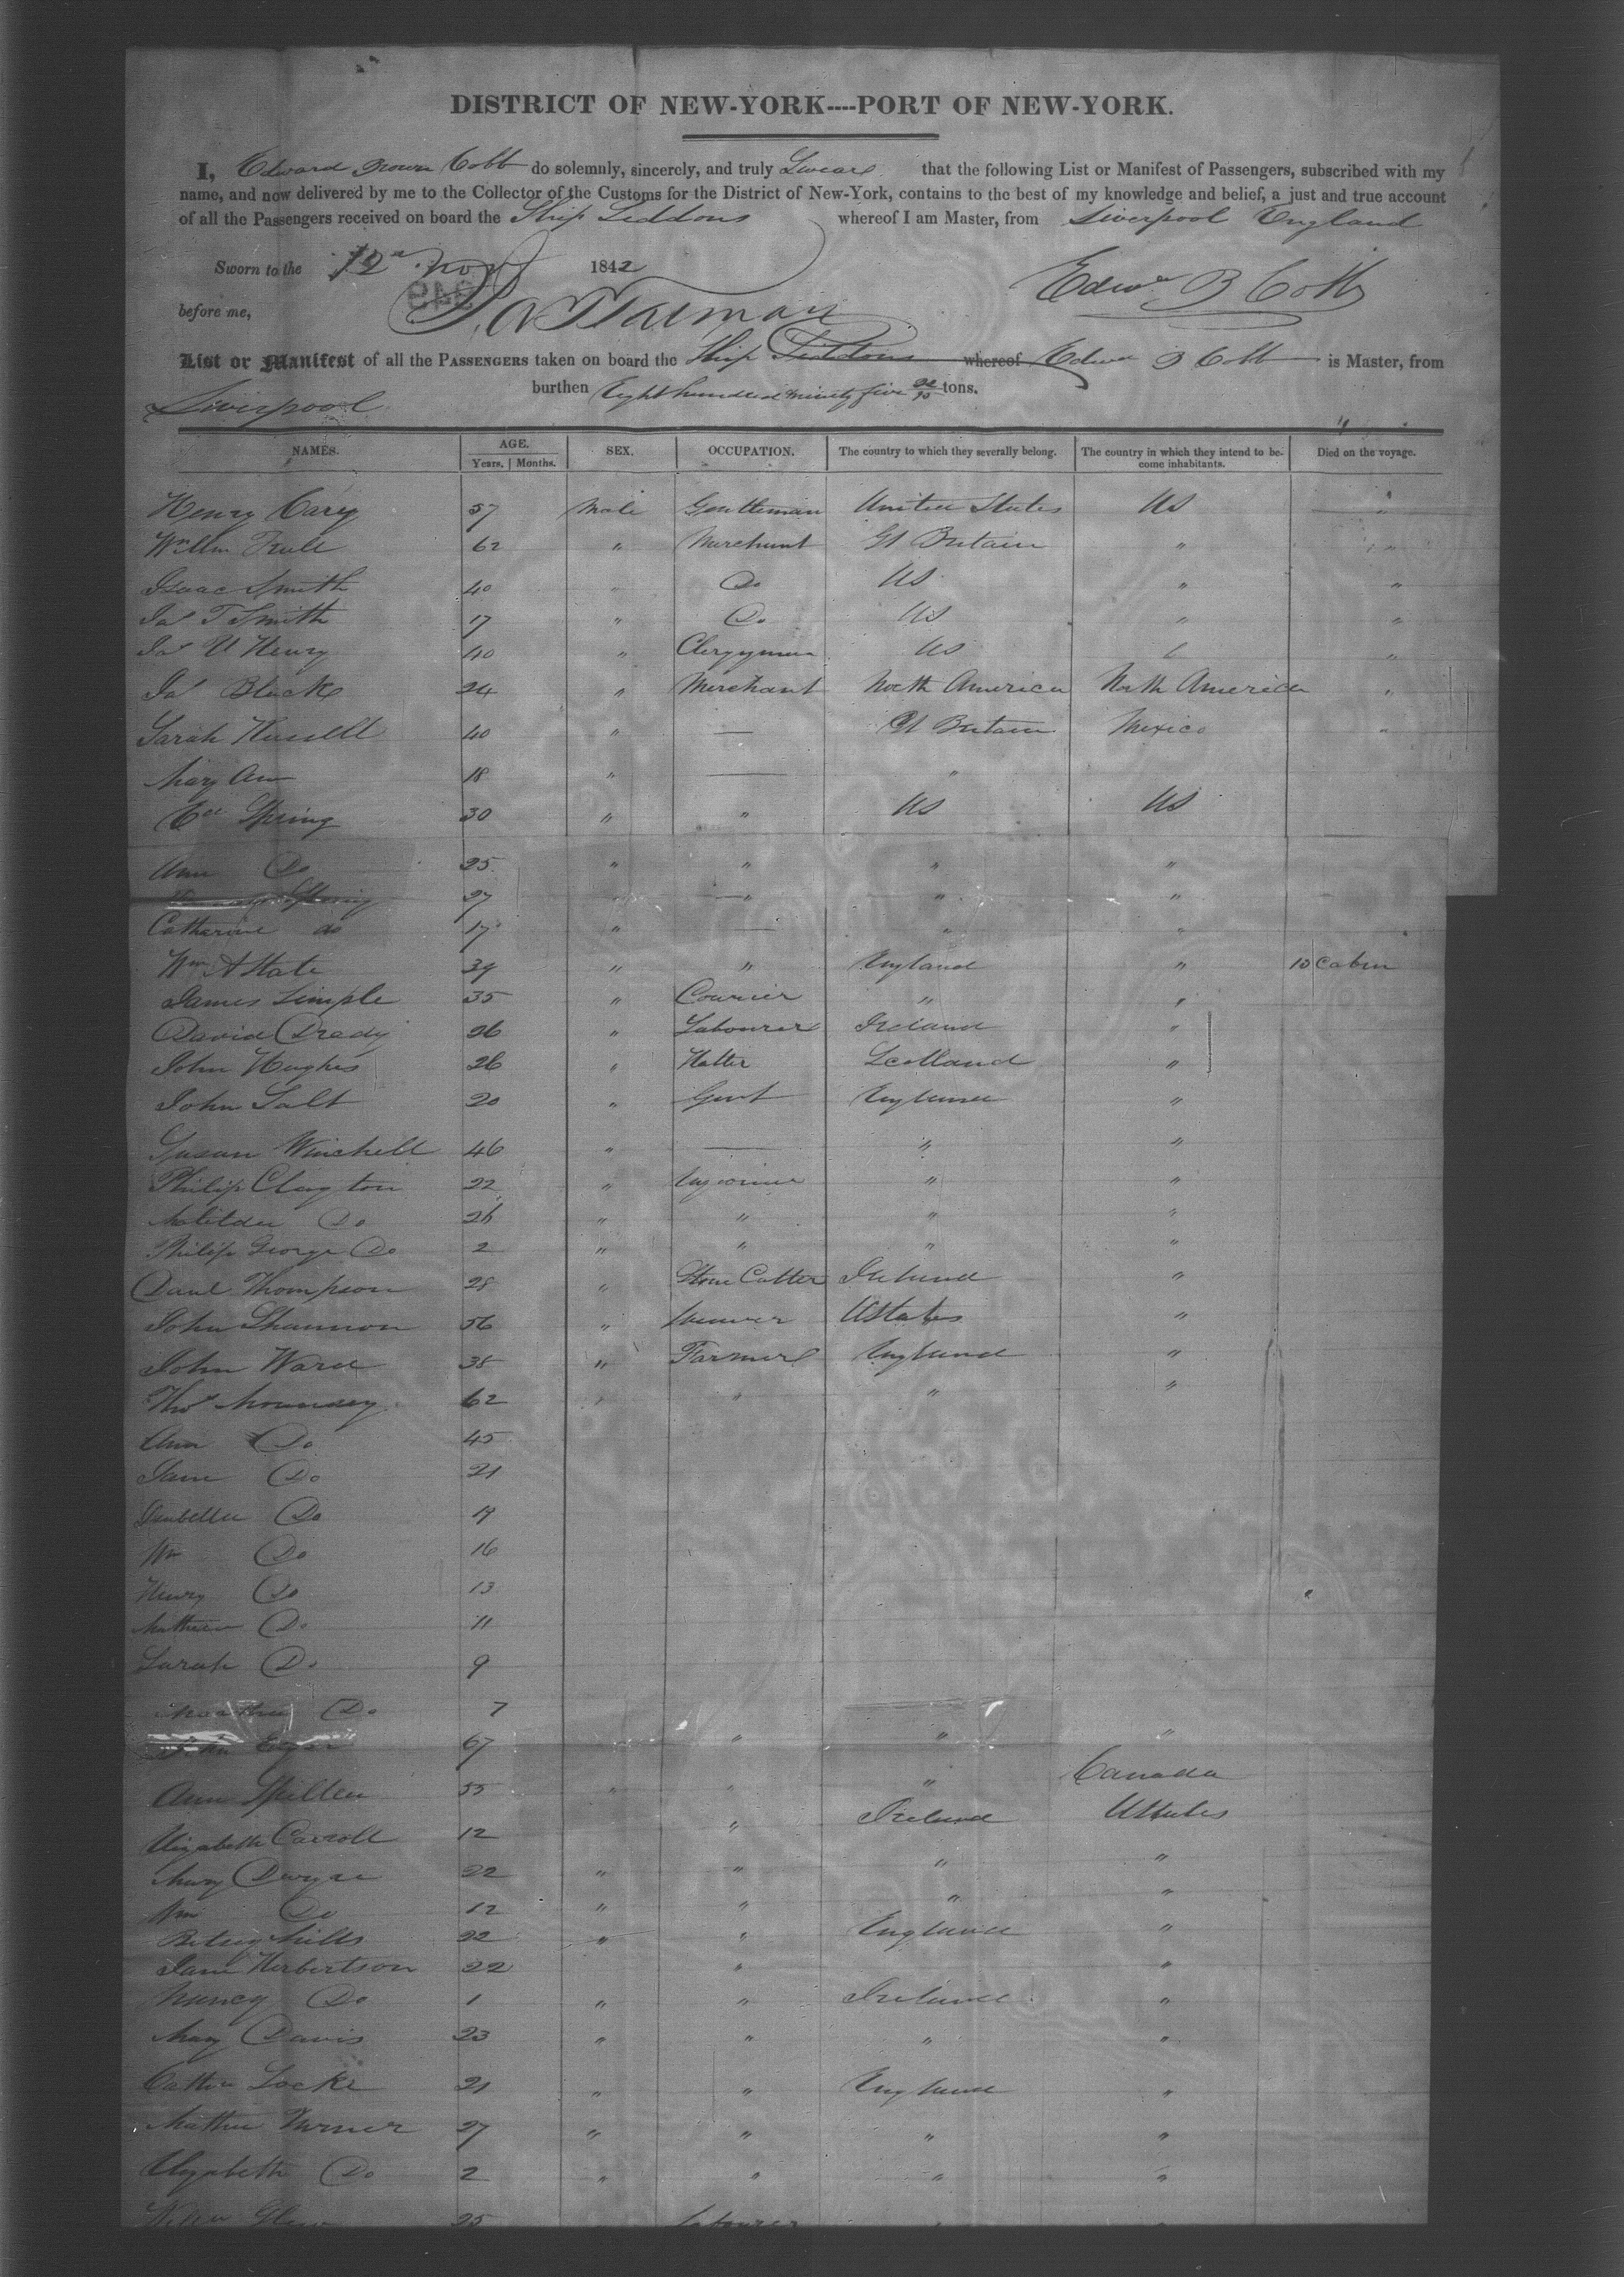 DISTRICT OF NEW-YORK----PORT OF NEW-YORK.
I, Edward Brown Cobb do solemnly, sincerely, and truly Swear that the following List or Manifest of Passengers, subscribed with my
name, and now delivered by me to the Collector of the Customs for the District of New-York, contains to the best of my knowledge and belief, a just and true account
of all the Passengers received on board the Ship Siddons whereof I am Master, from Liverpool England
Sworn to the 12 Nov 1842
before me, Edwd B Cobb
List or Manifest of all the PASSENGERS taken on board the Ship Siddons whereof Edwd B Cobb is Master, from
Liverpool burthen Eight hundred ninety five tons.
NAMES. AGE. Years. Months. SEX. OCCUPATION. The country to which they severally belong. The country in which they intend to become inhabitants. Died on the voyage.
Henry Cary 57 Male Gentleman United States US "
Willm 62 " Merchant Gt Britain " "
Isaac Smith 40 " Do US " "
Jas T Smith 17 " Do US " "
Jas Henry 40 " Clergyman US "
Jas Black 24 " Merchant North America North America "
Sarah 40 " — Gt Britain Mexico "
Mary Ann 18 " — "
Spring 30 " " US US
Ann Do 25 " " " "
27 " " "
Catherine do 17 " — " "
Wm A State 39 " " England " 10 Cabin
James Simple 35 " Courier " "
David Drady 26 " Labourer Ireland "
John Hughes 26 " Hatter Scotland "
John Salt 20 " Gent England "
Susan Winchell 46 " — " "
Philip Clayton 22 " " "
Matilda Do 26 " " " "
Philip George Do 2 " " " "
Danl Thompson 28 " Stone Cutter Ireland "
John Shannon 56 " Weaver UStates "
John Ward 38 " Farmer England "
Thos Mounsey 62 " " " "
Ann Do 45
Jane Do 21
Isabella Do 19
Wm Do 16
Henry Do 13
Mathew Do 11
Sarah Do 9
Do 7
John 67 " " "
Ann 55 " " " Canada
Elizabeth Carroll 12 " Ireland UStates
Mary Dwyre 22 " " " "
Wm Do 12 " " " "
Betsey Mills 22 " " England "
Jane Herbertson 22 " "
Nancy Do 1 " " Ireland "
Mary Davis 23 " " " "
Locke 21 " " England "
Turner 27 " " " "
Elizabeth Do 2 " " " "
25 Labourer